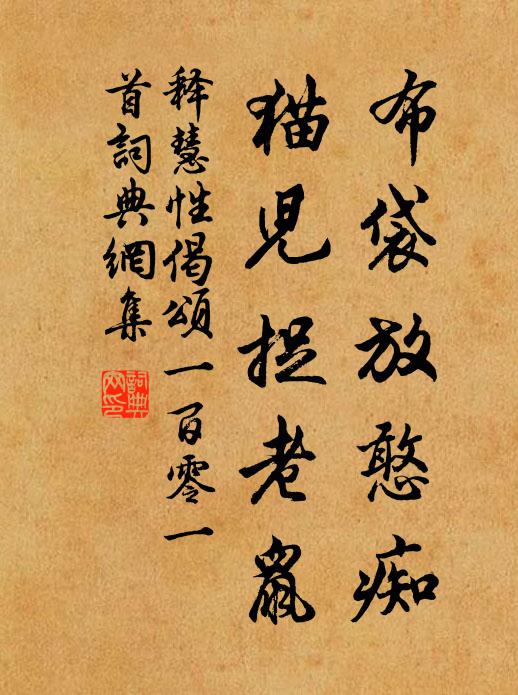 布袋放憨痴
猫児捉老鼠
释慧性偈頌一百零一
首詞典網集
詞典網印